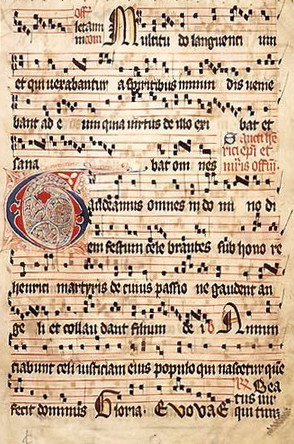 Multitu do languenti um
et qui vexabantur a spiritibus inmun dis venie
bant ad e um quia virtus de illo exi bat et
sana bat om nes
Gaudeamus omnes in do mi no di
em festum cele brantes sub hono re
henrici martyris de cuius passio ne gaudent an
ge li et collau dant filium de i Annun
ciabunt celi iusticiam eius populo qui nascetur que
fecit dominus Gloria Evovae